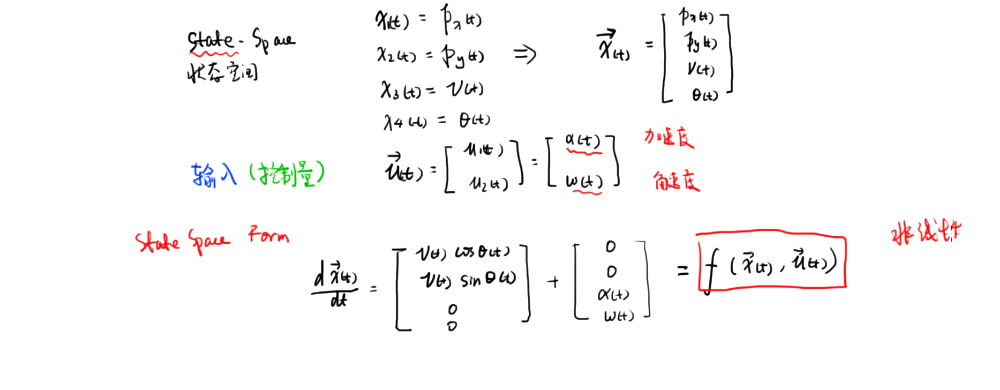 State-Space
状态空间
x₁(t) = pₓ(t)
x₂(t) = p_y(t) ⇒
x₃(t) = v(t)
x₄(t) = θ(t)
x⃗(t) = [pₓ(t) p_y(t) v(t) θ(t)]
输入 (控制量)
u⃗(t) = [u₁(t) u₂(t)] = [α(t) ω(t)]
加速度
角速度
State Space Form
dx⃗(t)/dt = [v(t) cosθ(t) v(t) sinθ(t) 0 0] + [0 0 α(t) ω(t)] = f (x⃗(t), u⃗(t))
非线性